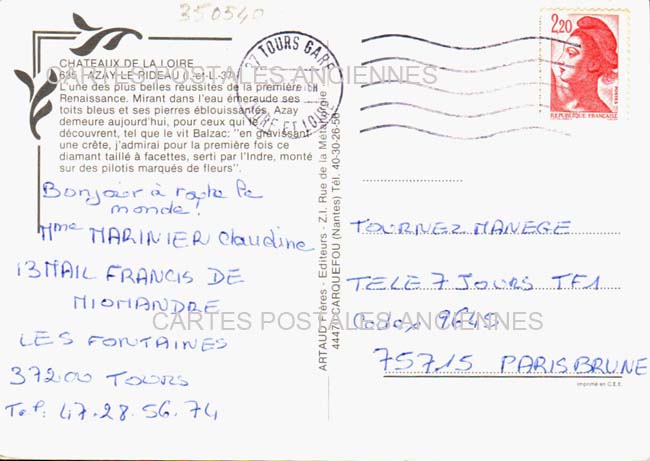 350540
CHATEAUX DE LA LOIRE
635 - AZAY-LE-RIDEAU (I-et-L - 37)
CARTES POSTALES ANCIENNES
L'une des plus belles réussites de la première
Renaissance. Mirant dans l'eau émeraude ses
toits bleus et ses pierres éblouissantes, Azay
demeure aujourd'hui, pour ceux qui le
découvrent, tel que le vit Balzac: "en gravissant
une crête, j'admirai pour la première fois ce
diamant taillé à facettes, serti par l'Indre, monté
sur des pilotis marqués de fleurs".
37 TOURS GARE
INDRE ET LOIRE
2,20
POSTES
REPUBLIQUE FRANÇAISE
Bonjour à toute le
monde!
Mme MARINIER Claudine
13 MAIL FRANCIS DE
MIOMANDRE
LES FONTAINES
37200 TOURS
Tel: 47.28.56.74
ARTAUD Frères - Editeurs - Z.I. Rue de la Métallurgie
44470 CARQUEFOU (Nantes) Tél. 40-30-26-56
TOURNEZ MANEGE
TELE 7 JOURS TF1
Cedex 9645
75715 PARIS BRUNE
CARTES POSTALES ANCIENNES
imprimé en C.E.E.